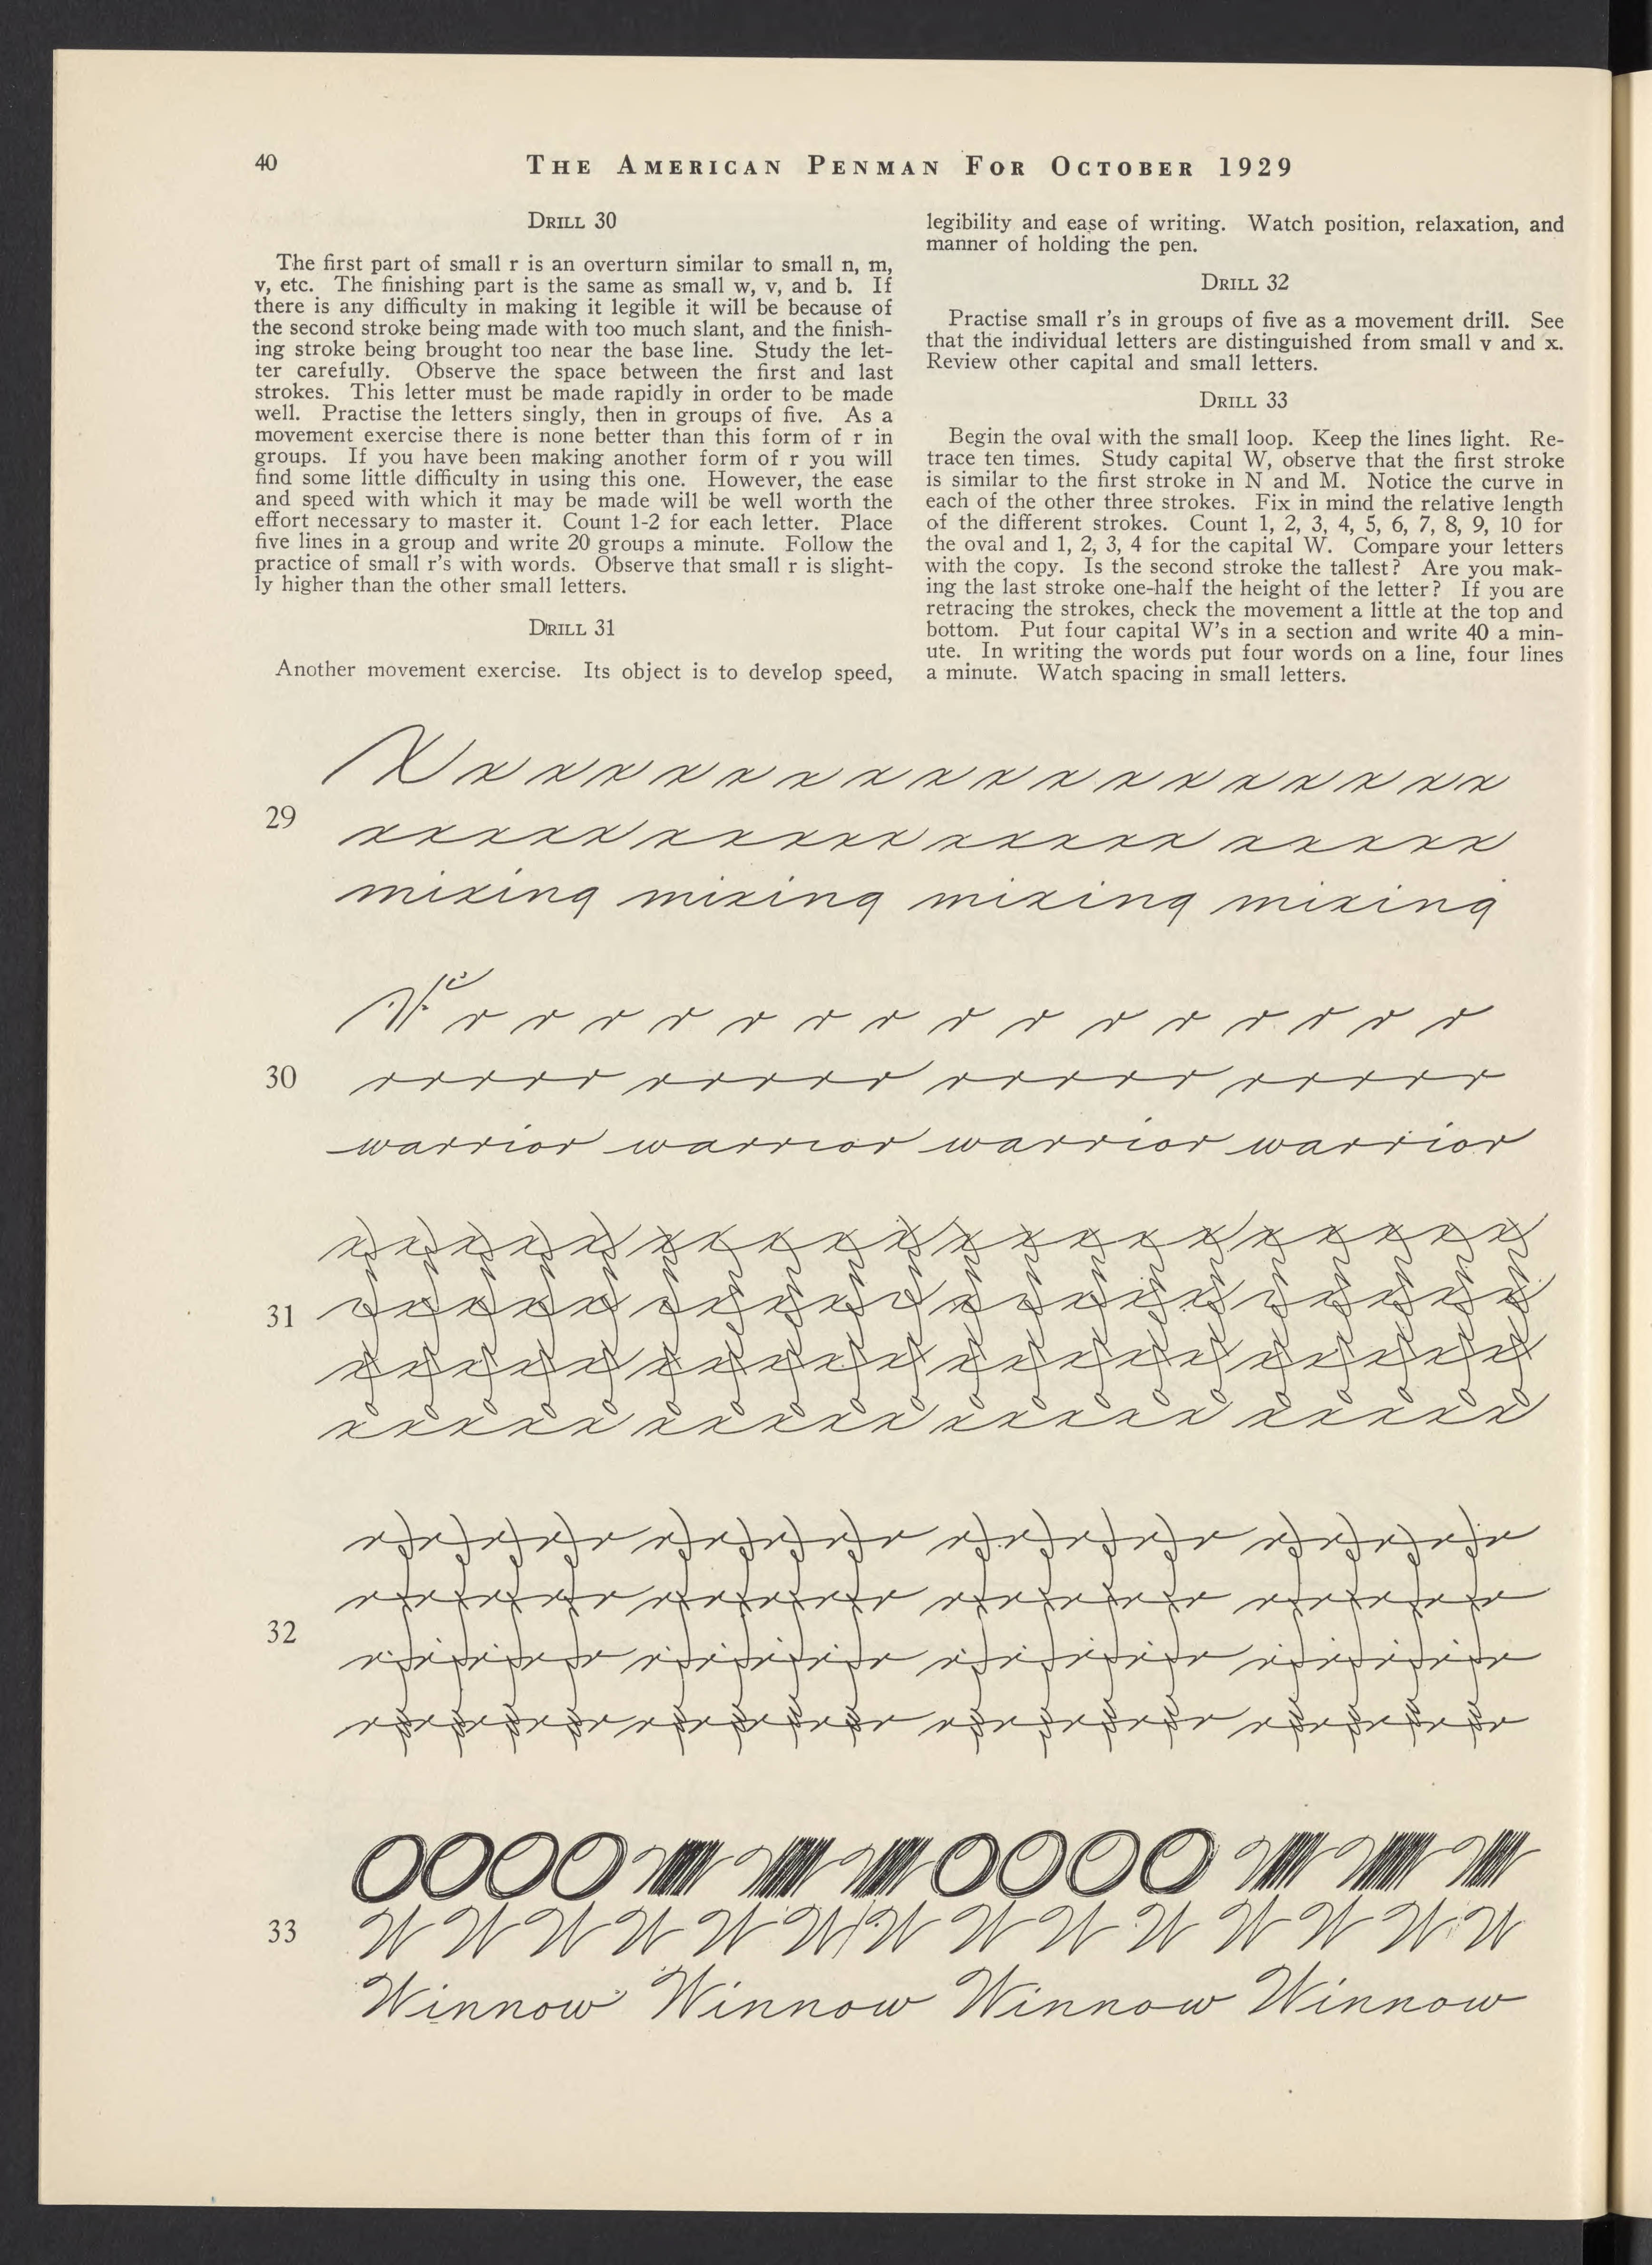 40
THE AMERICAN PENMAN FOR OCTOBER 1929
DRILL 30
The first part of small r is an overturn similar to small n, m,
v, etc. The finishing part is the same as small w, v, and b. If
there is any difficulty in making it legible it will be because of
the second stroke being made with too much slant, and the finish-
ing stroke being brought too near the base line. Study the let-
ter carefully. Observe the space between the first and last
strokes. This letter must be made rapidly in order to be made
well. Practise the letters singly, then in groups of five. As a
movement exercise there is none better than this form of r in
groups. If you have been making another form of r you will
find some little difficulty in using this one. However, the ease
and speed with which it may be made will be well worth the
effort necessary to master it. Count 1-2 for each letter. Place
five lines in a group and write 20 groups a minute. Follow the
practice of small r's with words. Observe that small r is slight-
ly higher than the other small letters.
DRILL 31
Another movement exercise. Its object is to develop speed,
legibility and ease of writing. Watch position, relaxation, and
manner of holding the pen.
DRILL 32
Practise small r's in groups of five as a movement drill. See
that the individual letters are distinguished from small v and x.
Review other capital and small letters.
DRILL 33
Begin the oval with the small loop. Keep the lines light. Re-
trace ten times. Study capital W, observe that the first stroke
is similar to the first stroke in N and M. Notice the curve in
each of the other three strokes. Fix in mind the relative length
of the different strokes. Count 1, 2, 3, 4, 5, 6, 7, 8, 9, 10 for
the oval and 1, 2, 3, 4 for the capital W. Compare your letters
with the copy. Is the second stroke the tallest? Are you mak-
ing the last stroke one-half the height of the letter? If you are
retracing the strokes, check the movement a little at the top and
bottom. Put four capital W's in a section and write 40 a min-
ute. In writing the words put four words on a line, four lines
a minute. Watch spacing in small letters.
x x x x x x x x x x x x x x x x x x x
29
xxxxx xxxxx xxxxx xxxxx
mixing mixing mixing mixing
r r r r r r r r r r r r r r r r
30
rrrrr rrrrr rrrrr rrrrr
warrior warrior warrior warrior
31
32
33
W W W W W W W W W W W W W W
Winnow Winnow Winnow Winnow